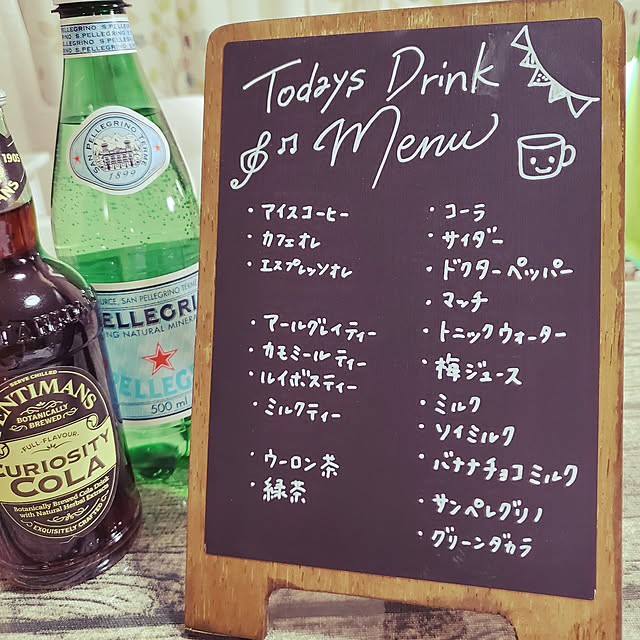 Todays Drink
Menu
・アイスコーヒー
・カフェオレ
・エスプレッソオレ
・アールグレイティー
・カモミールティー
・ルイボスティー
・ミルクティー
・ウーロン茶
・緑茶
・コーラ
・サイダー
・ドクターペッパー
・マッチ
・トニックウォーター
・梅ジュース
・ミルク
・ソイミルク
・バナナチョコミルク
・サンペレグリノ
・グリーンダカラ
S.PELLEGRINO S.PELLEGRINO
SAN PELLEGRINO TERME
1899
SOURCE, SAN PELLEGRINO TERME
PELLEGRI
NATURAL MINERA
PELLEGRI
500 ml
1905
SERVE CHILLED
ENTIMANS
BOTANICALLY
BREWED
FULL FLAVOUR
CURIOSITY
COLA
Botanically Brewed Cola Drink
with Natural Herbal Extracts
EXQUISITELY CRAFTED